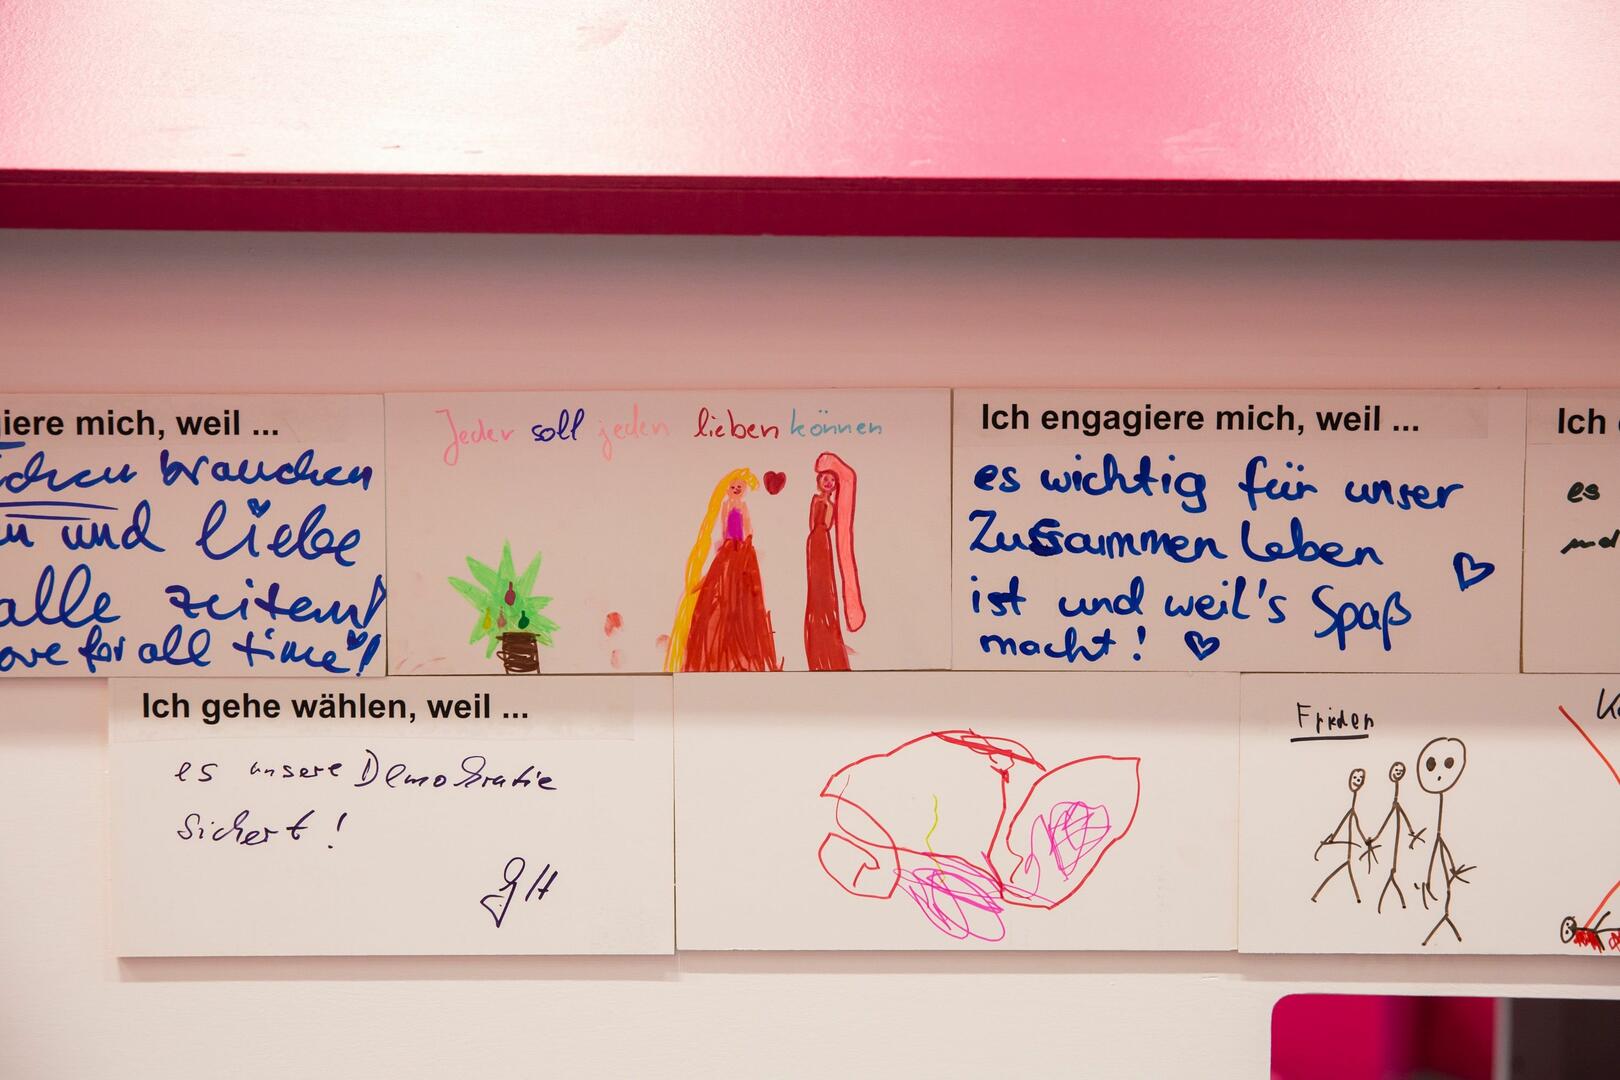 giere mich, weil ...
brauchen
und liebe
alle zeiten!
ove for all time!
Jeder soll jeden lieben können
Ich engagiere mich, weil ...
es wichtig für unser
Zusammen Leben
ist und weil's Spaß
macht!
Ich
es
Ich gehe wählen, weil ...
es unsere Demokratie
sichert!
GH
Frieden